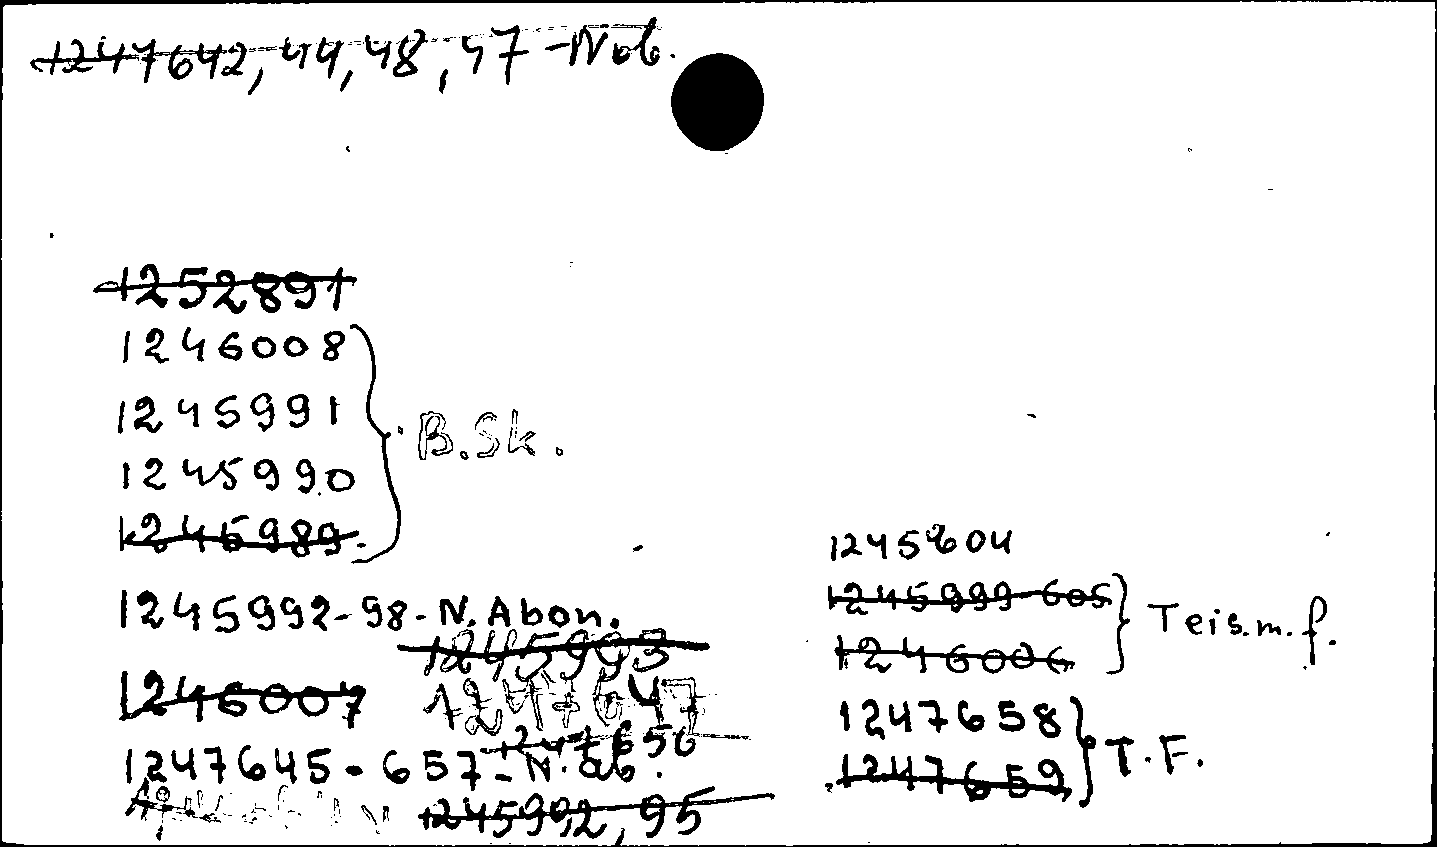 1247642, 44, 48, 47 - Nob.
1252891
1246008
1245991
B.Sk.
1245990
1245989.
1245992-98-N.Abon.
1245993
1246007
1247647
1247656
1247645-657-N.ab.
1245992, 95
1245604
1245999-605
Teis.m.f.
1246006
1247658
T.F.
1247659